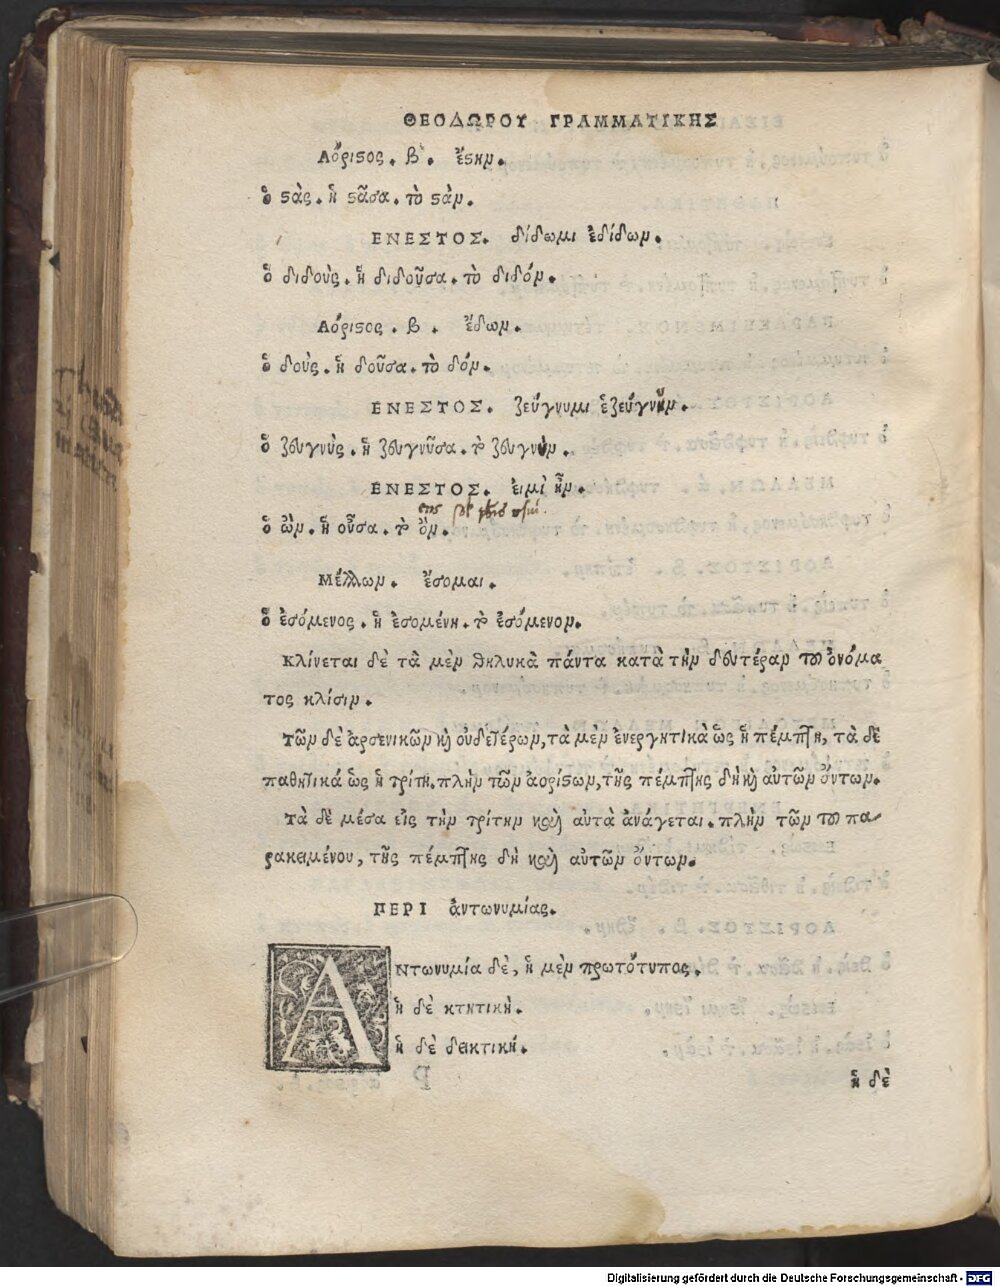 ΘΕΟΔΩΡΟΥ ΓΡΑΜΜΑΤΙΚΗΣ
Αόριϛος. β. ἔϛην.
ὁ ϛὰς. ἡ ϛᾶσα. τὸ ϛὰν.
ΕΝΕΣΤΟΣ. δίδωμι ἐδίδων.
ὁ διδοὺς. ἡ διδοῦσα. τὸ διδόν.
Αόριϛος. β. ἔδων.
ὁ δοὺς. ἡ δοῦσα. τὸ δόν.
ΕΝΕΣΤΟΣ. ζεύγνυμι ἐζεύγνυν.
ὁ ζευγνὺς. ἡ ζευγνῦσα. τὸ ζευγνύν.
ΕΝΕΣΤΟΣ. εἰμὶ ἦν.
ὁ ὢν. ἡ οὖσα. τὸ ὂν.
Μέλλων. ἔσομαι.
ὁ ἐσόμενος. ἡ ἐσομένη. τὸ ἐσόμενον.
Κλίνεται δὲ τὰ μὲν θηλυκὰ πάντα κατὰ τὴν δευτέραν τοῦ ὀνόμα
τος κλίσιν.
Τῶν δὲ ἀρσενικῶν καὶ οὐδετέρων, τὰ μὲν ἐνεργητικὰ ὡς ἡ πέμπτη, τὰ δὲ
παθητικά ὡς ἡ τρίτη. πλὴν τῶν ἀορίϛων, τῆς πέμπτης δὴ καὶ αὐτῶν ὄντων.
Τὰ δὲ μέσα εἰς τὴν τρίτην καὶ αὐτὰ ἀνάγεται. πλὴν τῶν τοῦ πα-
ρακειμένου, τῆς πέμπτης δὴ καὶ αὐτῶν ὄντων.
ΠΕΡΙ ἀντωνυμίας.
ΑΝτωνυμία δὲ, ἡ μὲν πρωτότυπος.
ἡ δὲ κτητική.
ἡ δὲ δεικτική.
ἡ δὲ
Digitalisierung gefördert durch die Deutsche Forschungsgemeinschaft - DFG